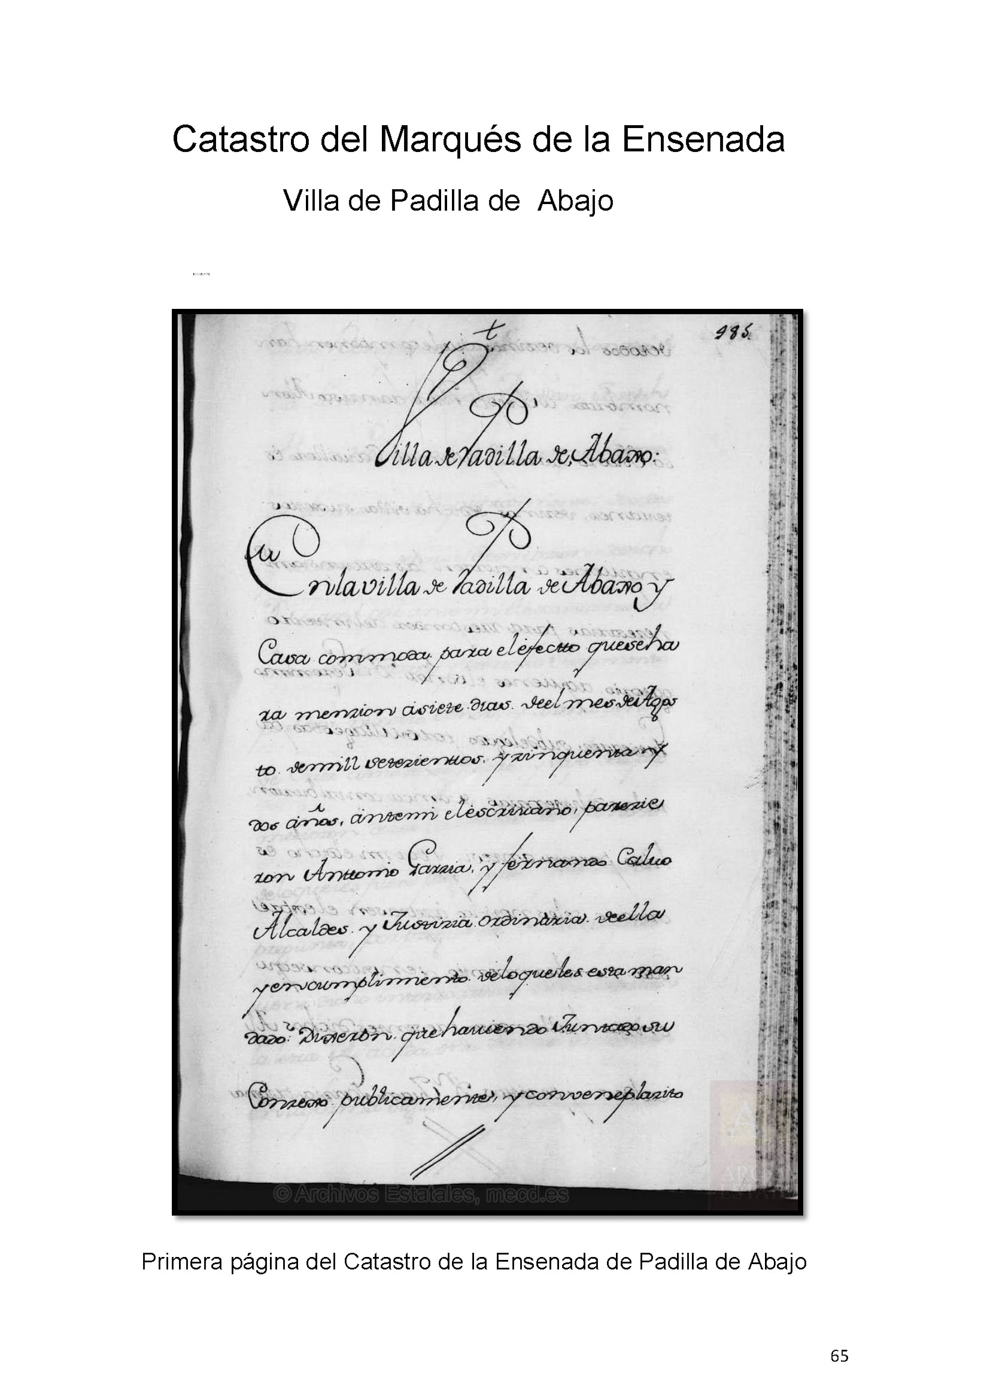 Catastro del Marqués de la Ensenada
Villa de Padilla de Abajo
985.
Villa de Padilla de Abaxo:
En la villa de Padilla de Abaxo y
Casa commoda para el efectto que se ha
ra menzion a siete dias deel mes de Agos
to de mill setezienttos y zinquenta y
dos años, antemi el escrivano, parezie
ron Anttonio Garzia, y fernando Calvo
Alcaldes y Justizia ordinaria deella
y en cumplimiento de lo que les esta man
dado: Dixeron que haviendo Juntado su
Conzexo publicamente, y con veneplazito
© Archivos Estatales, mecd.es
Primera página del Catastro de la Ensenada de Padilla de Abajo
65